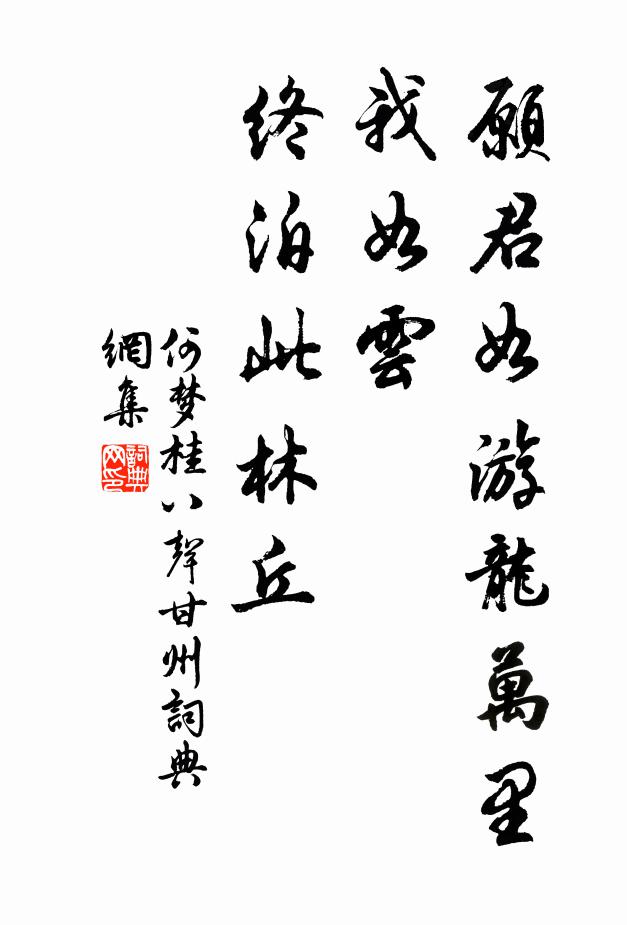 願君如游龍萬里
我如雲
終泊此林丘
何梦桂八聲甘州詞典
網集
詞典
网印